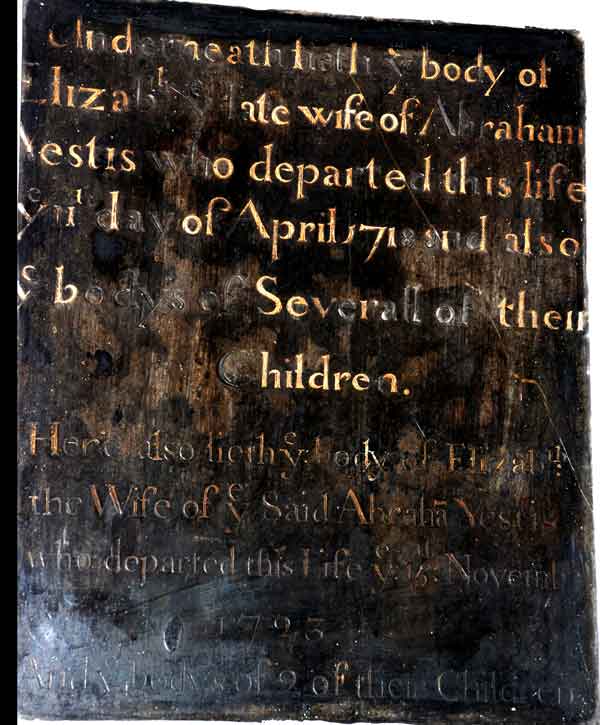 Underneath lieth yᵉ body of
Elizabᵗʰ yᵉ late wife of Abraham
Yestis who departed this life
yᵉ 11ᵗ day of April 1718 and also
yᵉ bodys of Severall of their
Children.
Here also lieth yᵉ body of Elizabᵗʰ
the Wife of yᵉ Said Abrahā Yestis
who departed this Life yᵉ 15ᵗʰ Novemb
1723
And yᵉ bodys of 2 of their Children